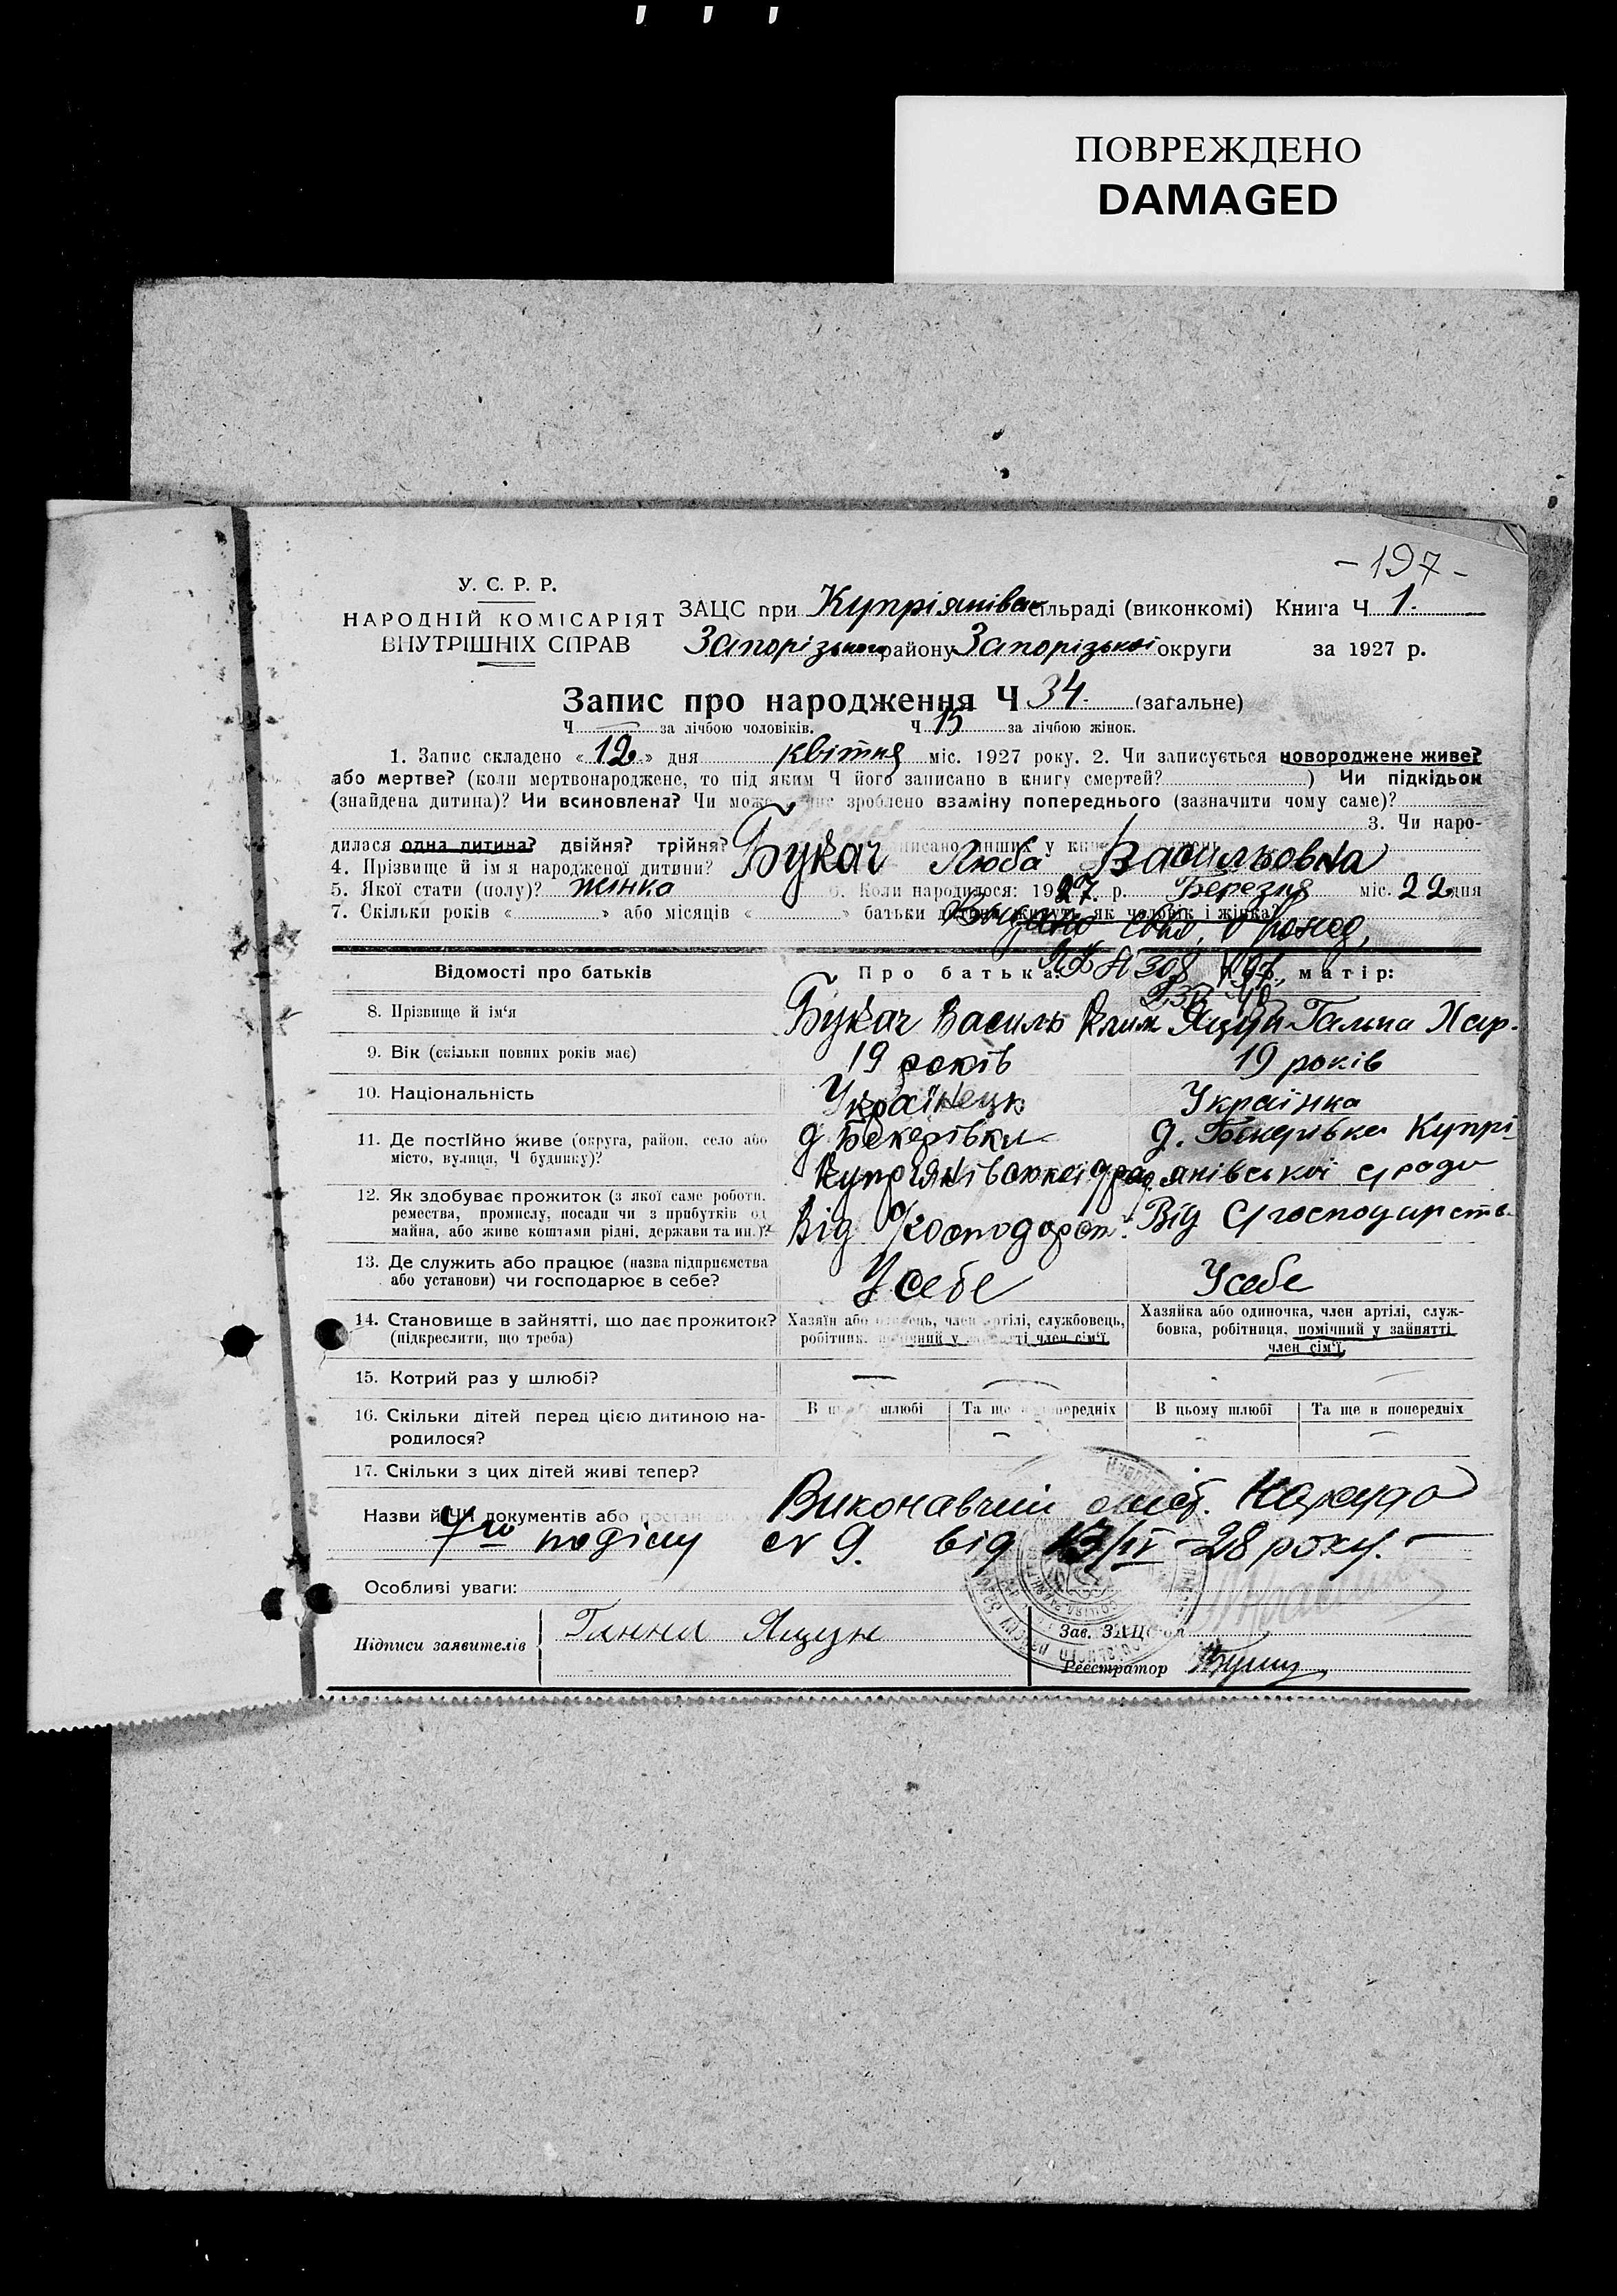 ПОВРЕЖДЕНО
DAMAGED
- 197 -
У. С. Р. Р.
НАРОДНІЙ КОМІСАРІЯТ
ВНУТРІШНІХ СПРАВ
ЗАЦС при Купріянівск сільраді (виконкомі) Книга Ч 1.
Запорізького району Запорізької округи за 1927 р.
Запис про народження Ч 34. (загальне)
Ч — за лічбою чоловіків. Ч 15 за лічбою жінок.
1. Запис складено «12» дня квітня міс. 1927 року. 2. Чи записується новороджене живе?
або мертве? (коли мертвонароджене, то під яким Ч його записано в книгу смертей? ) Чи підкідьок
(знайдена дитина)? Чи всиновлена? Чи може зроблено взаміну попереднього (зазначити чому саме)?
3. Чи наро-
дилася одна дитина? двійня? трійня? инших у
4. Прізвище й ім'я народженої дитини? Букач Люба Васильовна
5. Якої стати (полу)? жінка 6. Коли народилося: 1927. р. Березня міс. 22 дня
7. Скільки років « » або місяців « » батьки живуть як чоловік і жінка?
Відомості про батьків Про батька: матір:
8. Прізвище й ім'я Букач Василь Клим Яцун Галина Хар.
9. Вік (скільки повних років має) 19 років 19 років
10. Національність Українець Українка
11. Де постійно живе (округа, район, село або д Бекерівка д. Бекерівка Купрі-
місто, вулиця, Ч будинку)? янівської с/ради
12. Як здобуває прожиток (з якої саме роботи,
ремества, промислу, посади чи з прибутків од
майна, або живе коштами рідні, держави та ин.)? Від с/господарст. Від с/господарств
13. Де служить або працює (назва підприємства
або установи) чи господарює в себе? У себе У себе
14. Становище в зайнятті, що дає прожиток? Хазяїн або член артілі, службовець, Хазяйка або одиночка, член артілі, служ-
(підкреслити, що треба) робітник, член сім'ї бовка, робітниця, помічний у зайнятті
член сім'ї
15. Котрий раз у шлюбі? — — —
16. Скільки дітей перед цією дитиною на- В шлюбі Та ще в попередніх В цьому шлюбі Та ще в попередніх
родилося? — — —
17. Скільки з цих дітей живі тепер?
Назви й ЧЧ документів або Виконавчий лист. Нарсуда
7го поділу № 9. від 13/IV - 28 року. —
Особливі уваги:
Підписи заявителів Ганна Яцун Зав. ЗАЦС'ом
Реєстратор